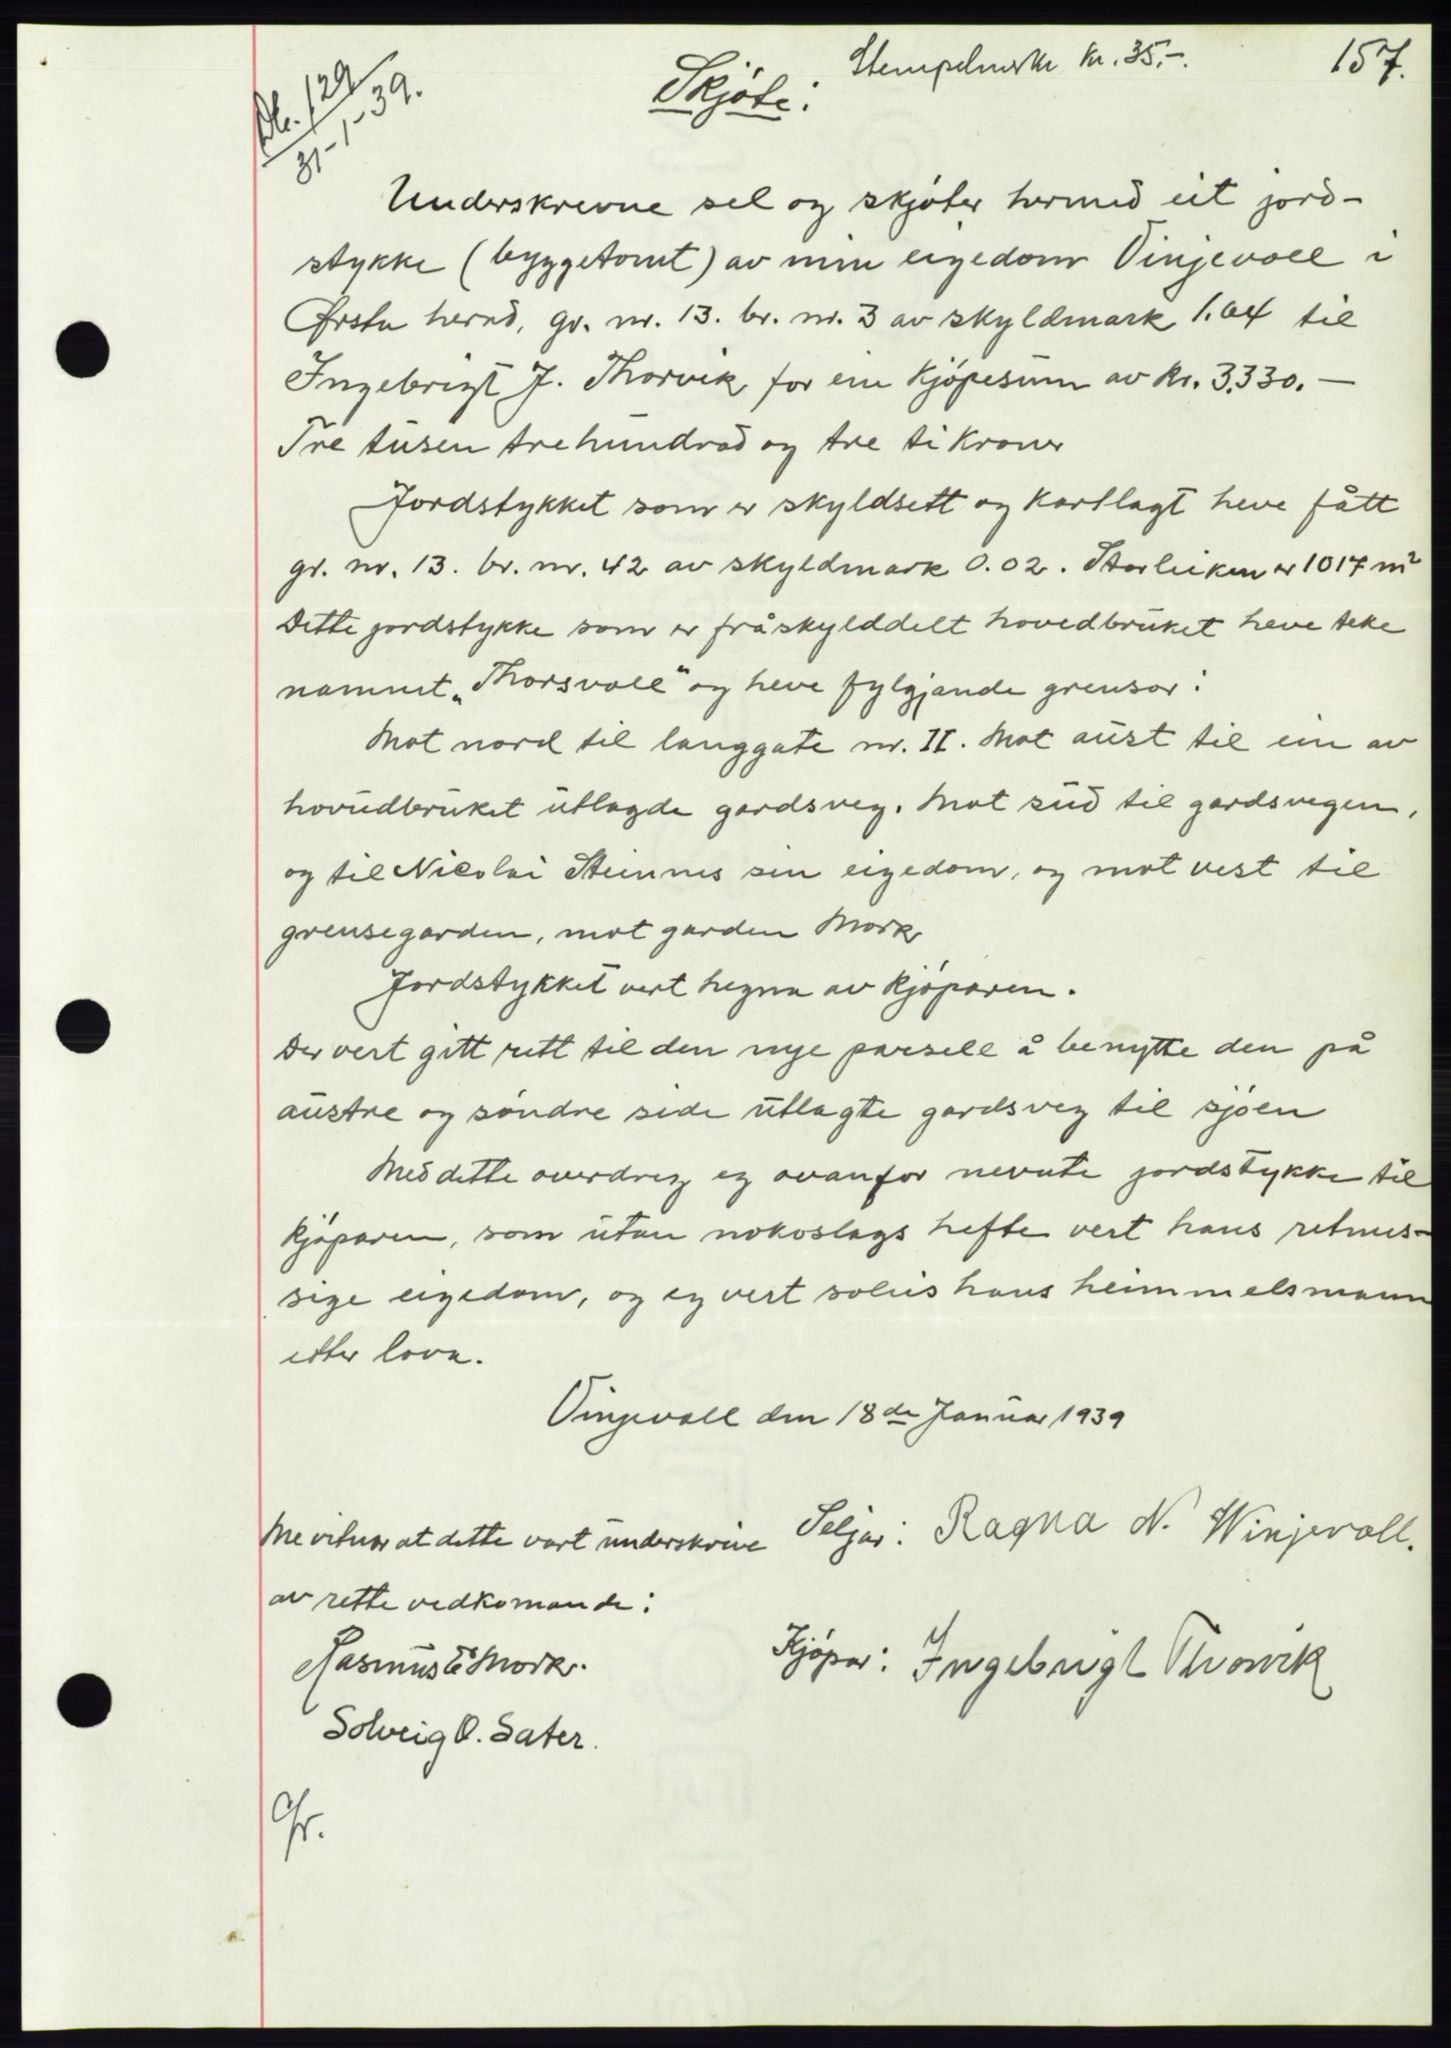 Stempelmerke kr. 35.-.
157.
Db. 129
31-1-39.
Skjøte:
Underskrevne sel og skjøter hermed eit jord-
stykke (byggetomt) av min eigedom Vinjevoll i
Ørsta herad, gr. nr. 13. br. nr. 3 av skyldmark 1.64 til
Ingebrigt J. Thorvik, for ein kjøpesum av kr. 3.330.—
Tre tusen trehundrad og tre ti kroner
Jordstykket som er skyldsett og kartlagt heve fått
gr. nr. 13. br. nr. 42 av skyldmark 0.02. Storleiken er 1017 m²
Dette jordstykke som er fråskylddelt hovedbruket heve teke
namnet „Thorsvoll“ og heve fylgjande grensor:
Mot nord til langgate nr. II. Mot aust til ein av
hovudbruket utlagde gardsveg. Mot sud til gardsvegen,
og til Nicolai Steinnes sin eigedom, og mot vest til
grensegarden, mot garden Mork
Jordstykket vert hegna av kjøparen.
Der vert gitt rett til den nye parsell å benytte den på
austre og søndre side utlagte gardsveg til sjøen
Med dette overdreg eg ovanfor nevnte jordstykke til
kjøparen, som utan nokoslags hefte vert hans retmes-
sige eigedom, og eg vert soleis hans heimmelsmann
etter lova.
Vinjevoll den 18de Januar 1939
Me vitnar at dette vart underskrive
Seljar: Ragna N. Winjevoll.
av rette vedkomande:
Rasmus E Mork.
Kjøpar: Ingebrigt Thorvik
Solveig O. Sater.